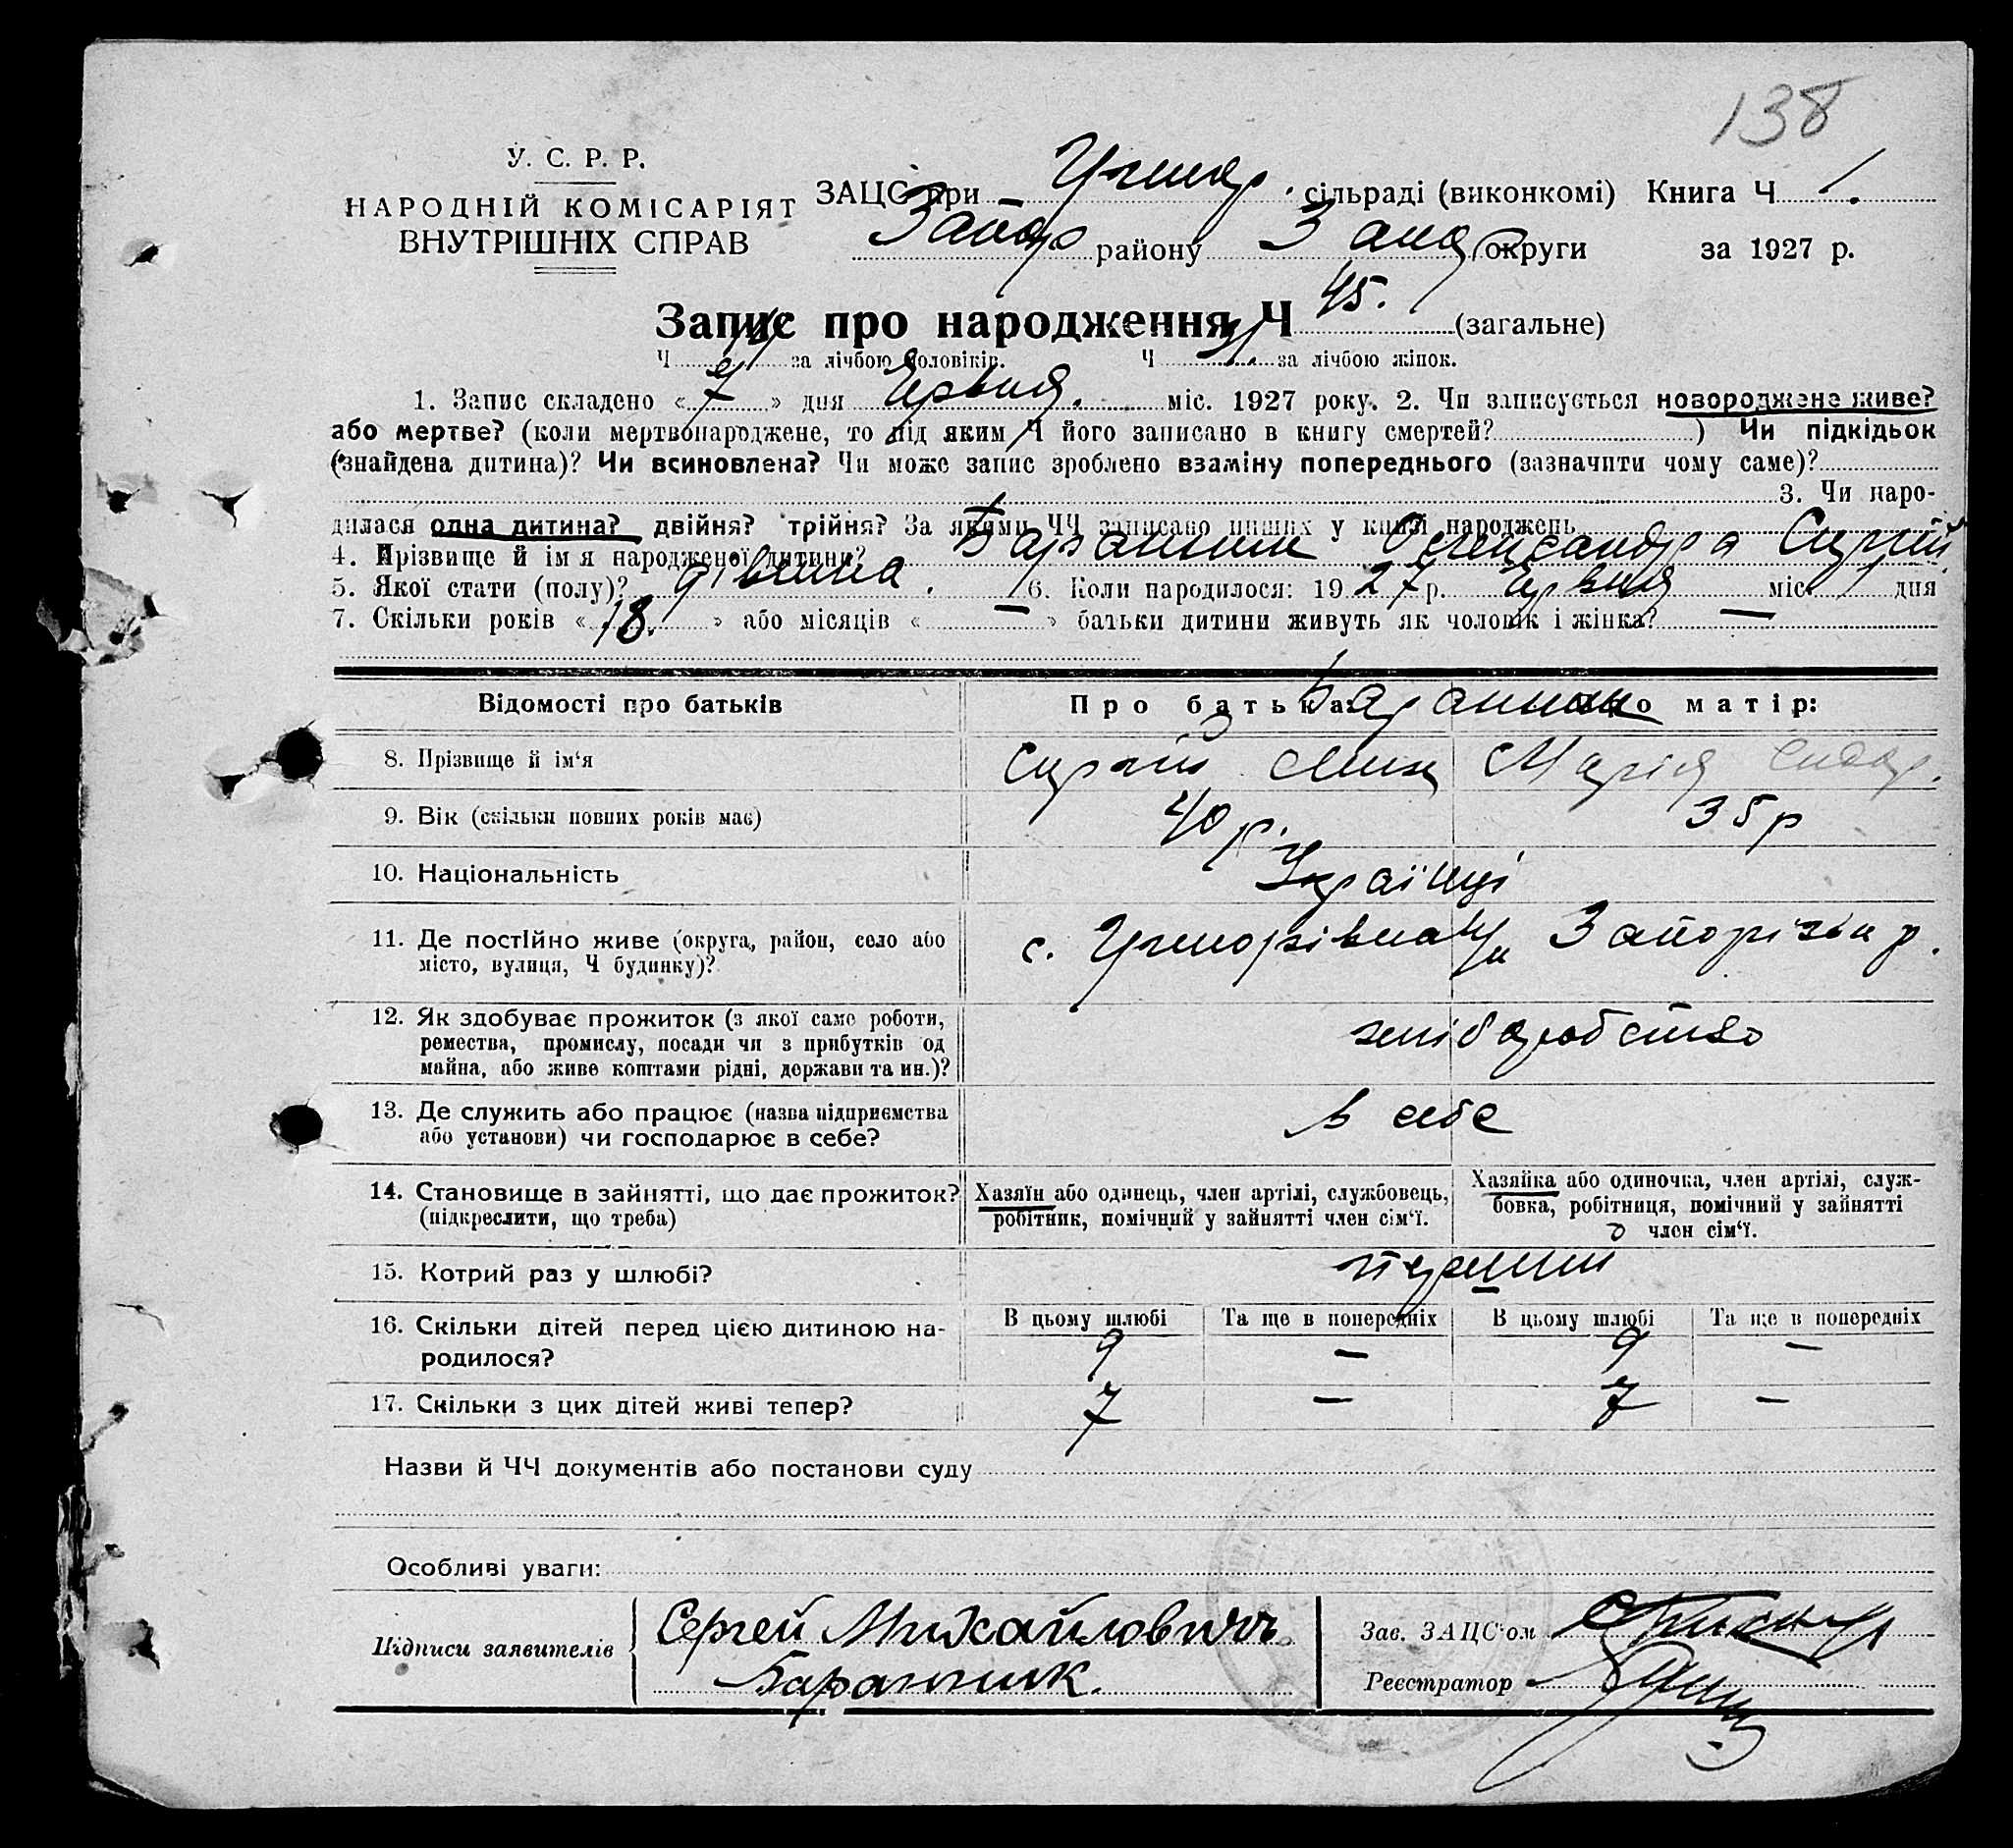 138
У. С. Р. Р.
НАРОДНІЙ КОМІСАРІЯТ
ВНУТРІШНІХ СПРАВ
ЗАЦС при сільраді (виконкомі) Книга Ч 1.
Запор району Запор округи за 1927 р.
Запис про народження Ч 45. (загальне)
Ч за лічбою чоловіків. Ч за лічбою жінок.
1. Запис складено « 7 » дня Червня. міс. 1927 року. 2. Чи записується новороджене живе?
або мертве? (коли мертвонароджене, то під яким Ч його записано в книгу смертей? ) Чи підкідьок
(знайдена дитина)? Чи всиновлена? Чи може запис зроблено взаміну попереднього (зазначити чому саме)?
3. Чи наро-
дилася одна дитина? двійня? трійня? За якими ЧЧ записано инших у книзі народжень
4. Прізвище й ім я народженої дитини? Баранник Олександра Сергій
5. Якої стати (полу)? дівчина. 6. Коли народилося: 1927 р. Червня міс. 1 дня
7. Скільки років « 18. » або місяців « — » батьки дитини живуть як чоловік і жінка? —
Відомості про батьків Про батька Баранник Про матір:
8. Прізвище й ім'я Сергій Мих Марія Сидор.
9. Вік (скільки повних років має) 40 р. 35 р
10. Національність Українці
11. Де постійно живе (округа, район, село або
місто, вулиця, Ч будинку)? с. Запорізьк р.
12. Як здобуває прожиток (з якої саме роботи,
ремества, промислу, посади чи з прибутків од
майна, або живе коштами рідні, держави та ин.)? хліборобство
13. Де служить або працює (назва підприємства
або установи) чи господарює в себе? в себе
14. Становище в зайнятті, що дає прожиток?
(підкреслити, що треба)
Хазяїн або одинець, член артілі, службовець,
робітник, помічний у зайнятті член сім'ї.
Хазяйка або одиночка, член артілі, служ-
бовка, робітниця, помічний у зайнятті
член сім'ї.
15. Котрий раз у шлюбі? перший
16. Скільки дітей перед цією дитиною на-
родилося?
В цьому шлюбі Та ще в попередніх В цьому шлюбі Та ще в попередніх
9 — 9 —
17. Скільки з цих дітей живі тепер? 7 — 7 —
Назви й ЧЧ документів або постанови суду
Особливі уваги:
Підписи заявителів Сергей Михайловичъ
Баранник.
Зав. ЗАЦС'ом
Реєстратор